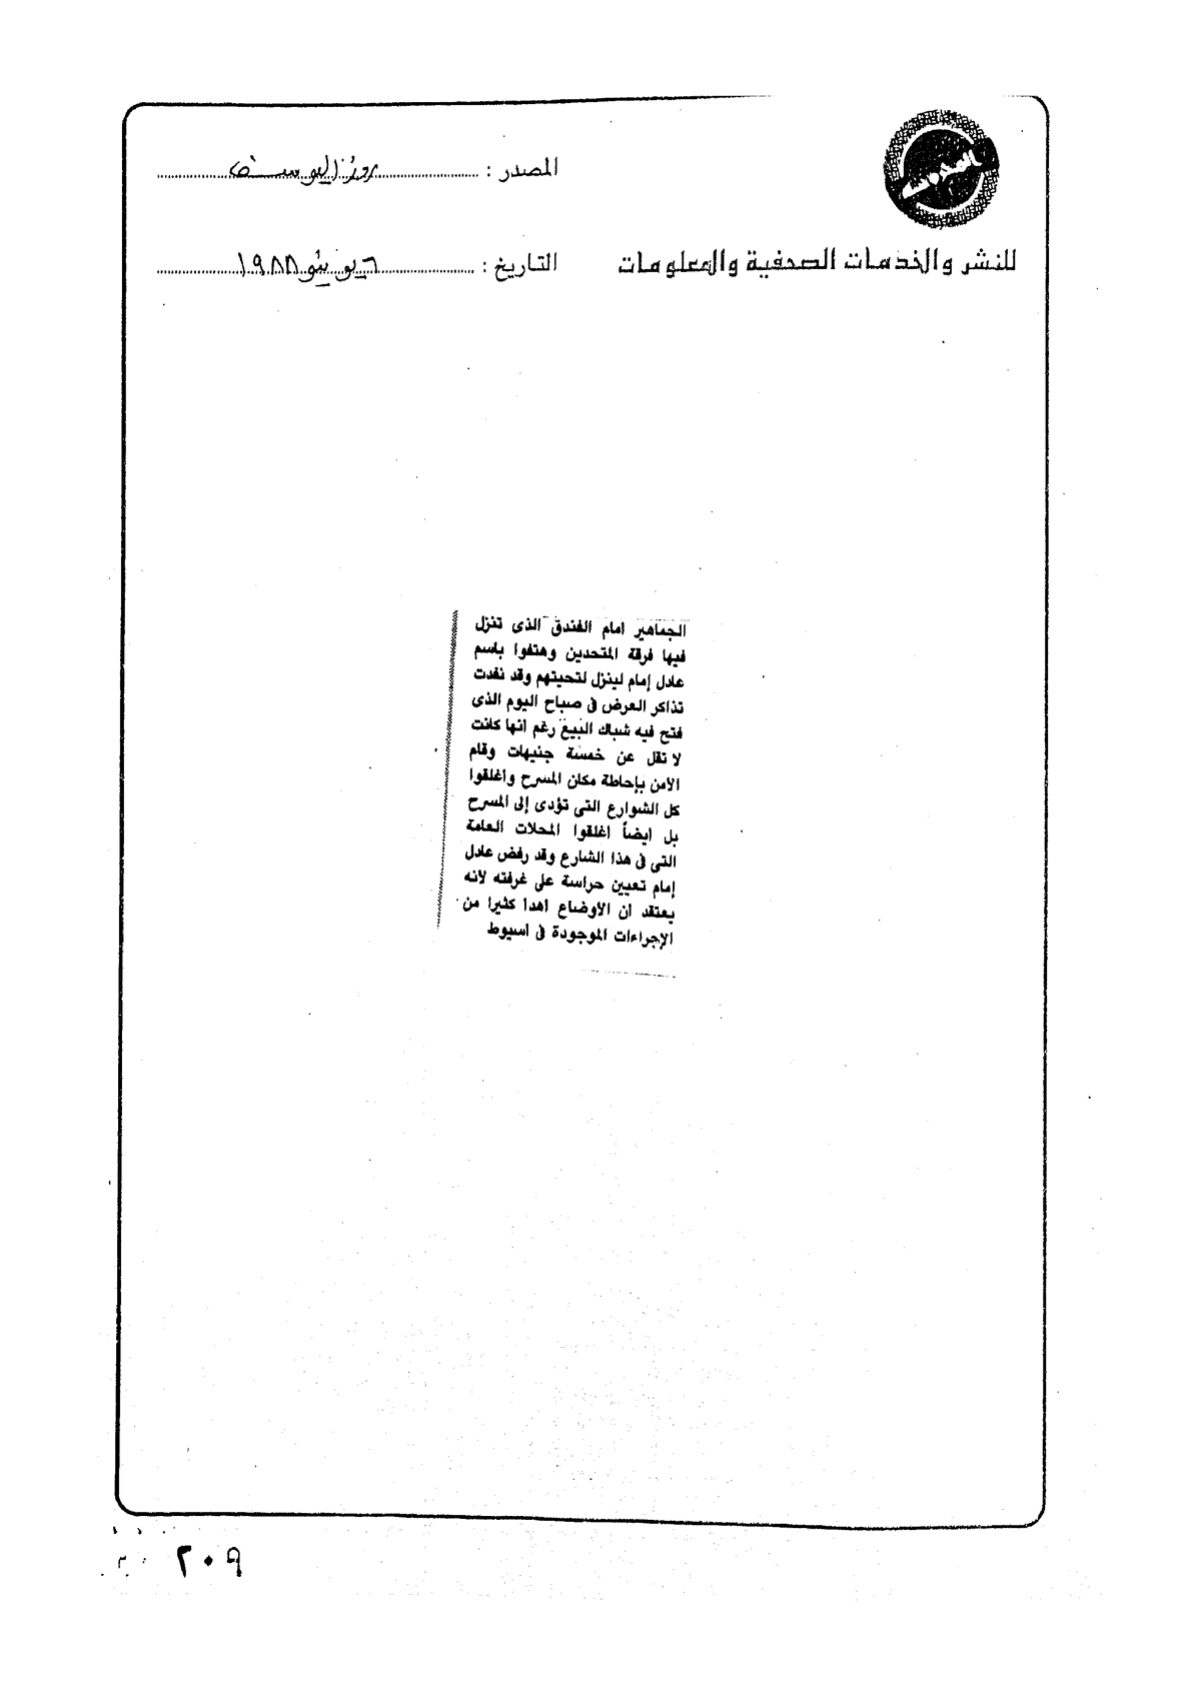 المصدر : روز اليوسف
للنشر والخدمات الصحفية والمعلومات
التاريخ : ٦ يونيو ١٩٨٨
الجماهير امام الفندق الذى تنزل
فيها فرقة المتحدين وهتفوا باسم
عادل إمام لينزل لتحيتهم وقد نفدت
تذاكر العرض فى صباح اليوم الذى
فتح فيه شباك البيع رغم انها كانت
لا تقل عن خمسة جنيهات وقام
الامن بإحاطة مكان المسرح واغلقوا
كل الشوارع التى تؤدى إلى المسرح
بل ايضاً اغلقوا المحلات العامة
التى فى هذا الشارع وقد رفض عادل
إمام تعيين حراسة على غرفته لانه
يعتقد ان الاوضاع اهدا كثيرا من
الإجراءات الموجودة فى اسيوط
٢٠٩